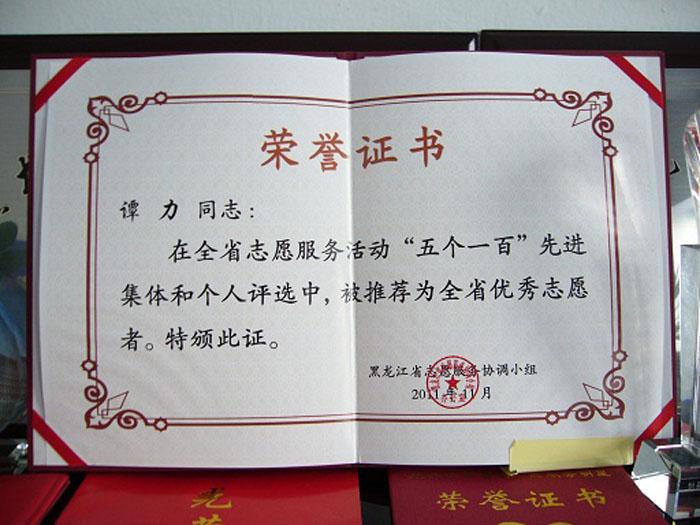 荣誉证书
谭 力 同志：
在全省志愿服务活动“五个一百”先进
集体和个人评选中，被推荐为全省优秀志愿
者。特颁此证。
黑龙江省志愿服务协调小组
2011年11月
光
荣誉证书